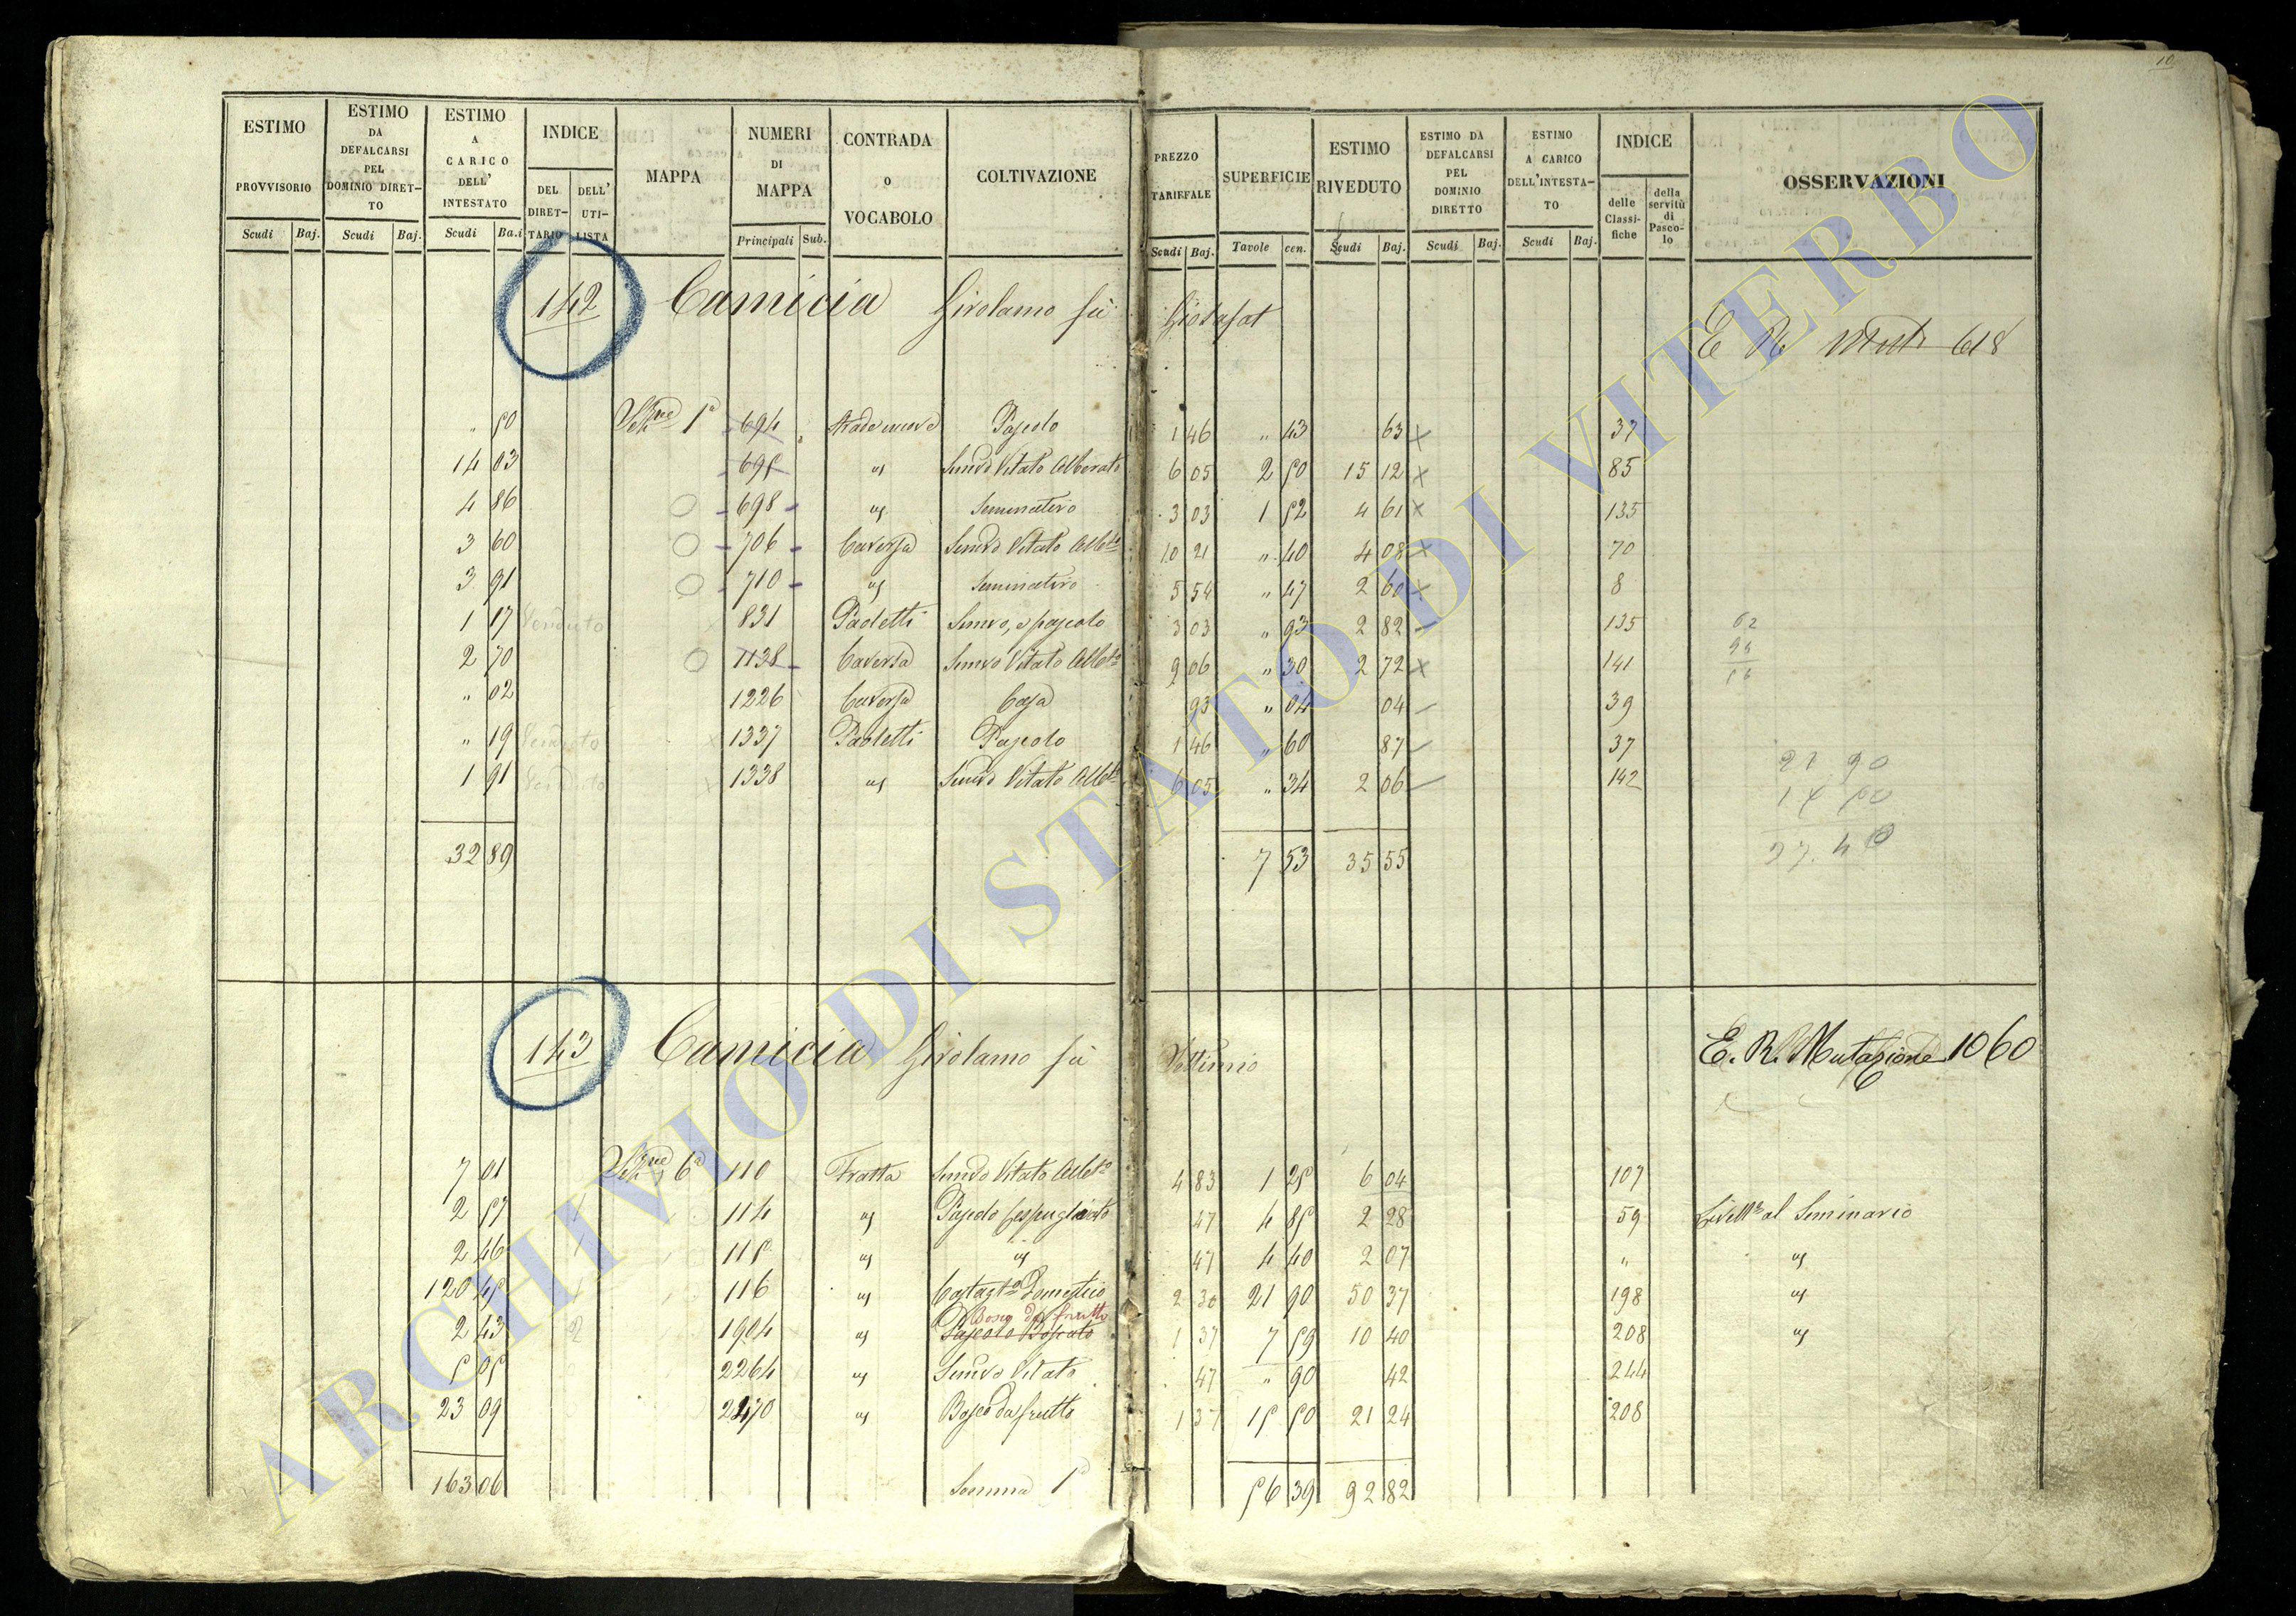 10
ESTIMO PROVVISORIO Scudi Baj.
ESTIMO DA DEFALCARSI PEL DOMINIO DIRET-TO Scudi Baj.
ESTIMO A CARICO DELL' INTESTATO Scudi Ba.i
INDICE DEL DIRET-TARIO DELL' UTI-LISTA
MAPPA
NUMERI DI MAPPA Principali Sub.
CONTRADA O VOCABOLO
COLTIVAZIONE
PREZZO TARIFFALE Scudi Baj.
SUPERFICIE Tavole cen.
ESTIMO RIVEDUTO Scudi Baj.
ESTIMO DA DEFALCARSI PEL DOMINIO DIRETTO Scudi Baj.
ESTIMO A CARICO DELL'INTESTA-TO Scudi Baj.
INDICE delle Classi-fiche della servitù di Pasco-lo
OSSERVAZIONI
142 Camicia Girolamo fu Giosafat
E R 618
" 50 Sezne 1a 694 Strada nuova Pascolo 1 46 " 43 63 x 37
14 03 695 us Semvo Vitato Alberato 6 05 2 50 15 12 x 85
4 86 698 us Seminativo 3 03 1 52 4 61 x 135
3 60 706 Caversa Semvo Vitato Albto 10 21 " 40 4 08 x 70
3 91 710 us Seminativo 5 54 " 47 2 60 x 8
1 17 Venduto 831 Paoletti Semvo, e pascolo 3 03 " 93 2 82 135
2 70 1138 Caversa Semvo Vitato Albto 9 06 " 30 2 72 x 141
" 02 1226 Caversa Casa 93 " 04 04 39
" 19 Venduto 1337 Paoletti Pascolo 1 46 " 60 87 37
1 91 Venduto 1338 us Semvo Vitato Albto 6 05 " 34 2 06 142
32 89 7 53 35 55
143 Camicia Girolamo fu Settimio
E. R. Mutazione 1060
7 01 Sezne 6a 110 Fratta Semvo Vitato Albto 4 83 1 25 6 04 107
2 57 114 us Pascolo Cespugliato 47 4 85 2 28 59 Livello al Seminario
2 46 115 us us 47 4 40 2 07 " us
120 45 116 us Castagto Domestico 2 30 21 90 50 37 198 us
Bosco da frutto
2 43 1904 us Pascolo Boscato 1 37 7 59 10 40 208 us
5 05 2264 us Semvo Vitato 47 " 90 42 244
23 09 2270 us Bosco da frutto 1 37 15 50 21 24 208
163 06 Somma 1a 56 39 92 82
ARCHIVIO DI STATO DI VITERBO